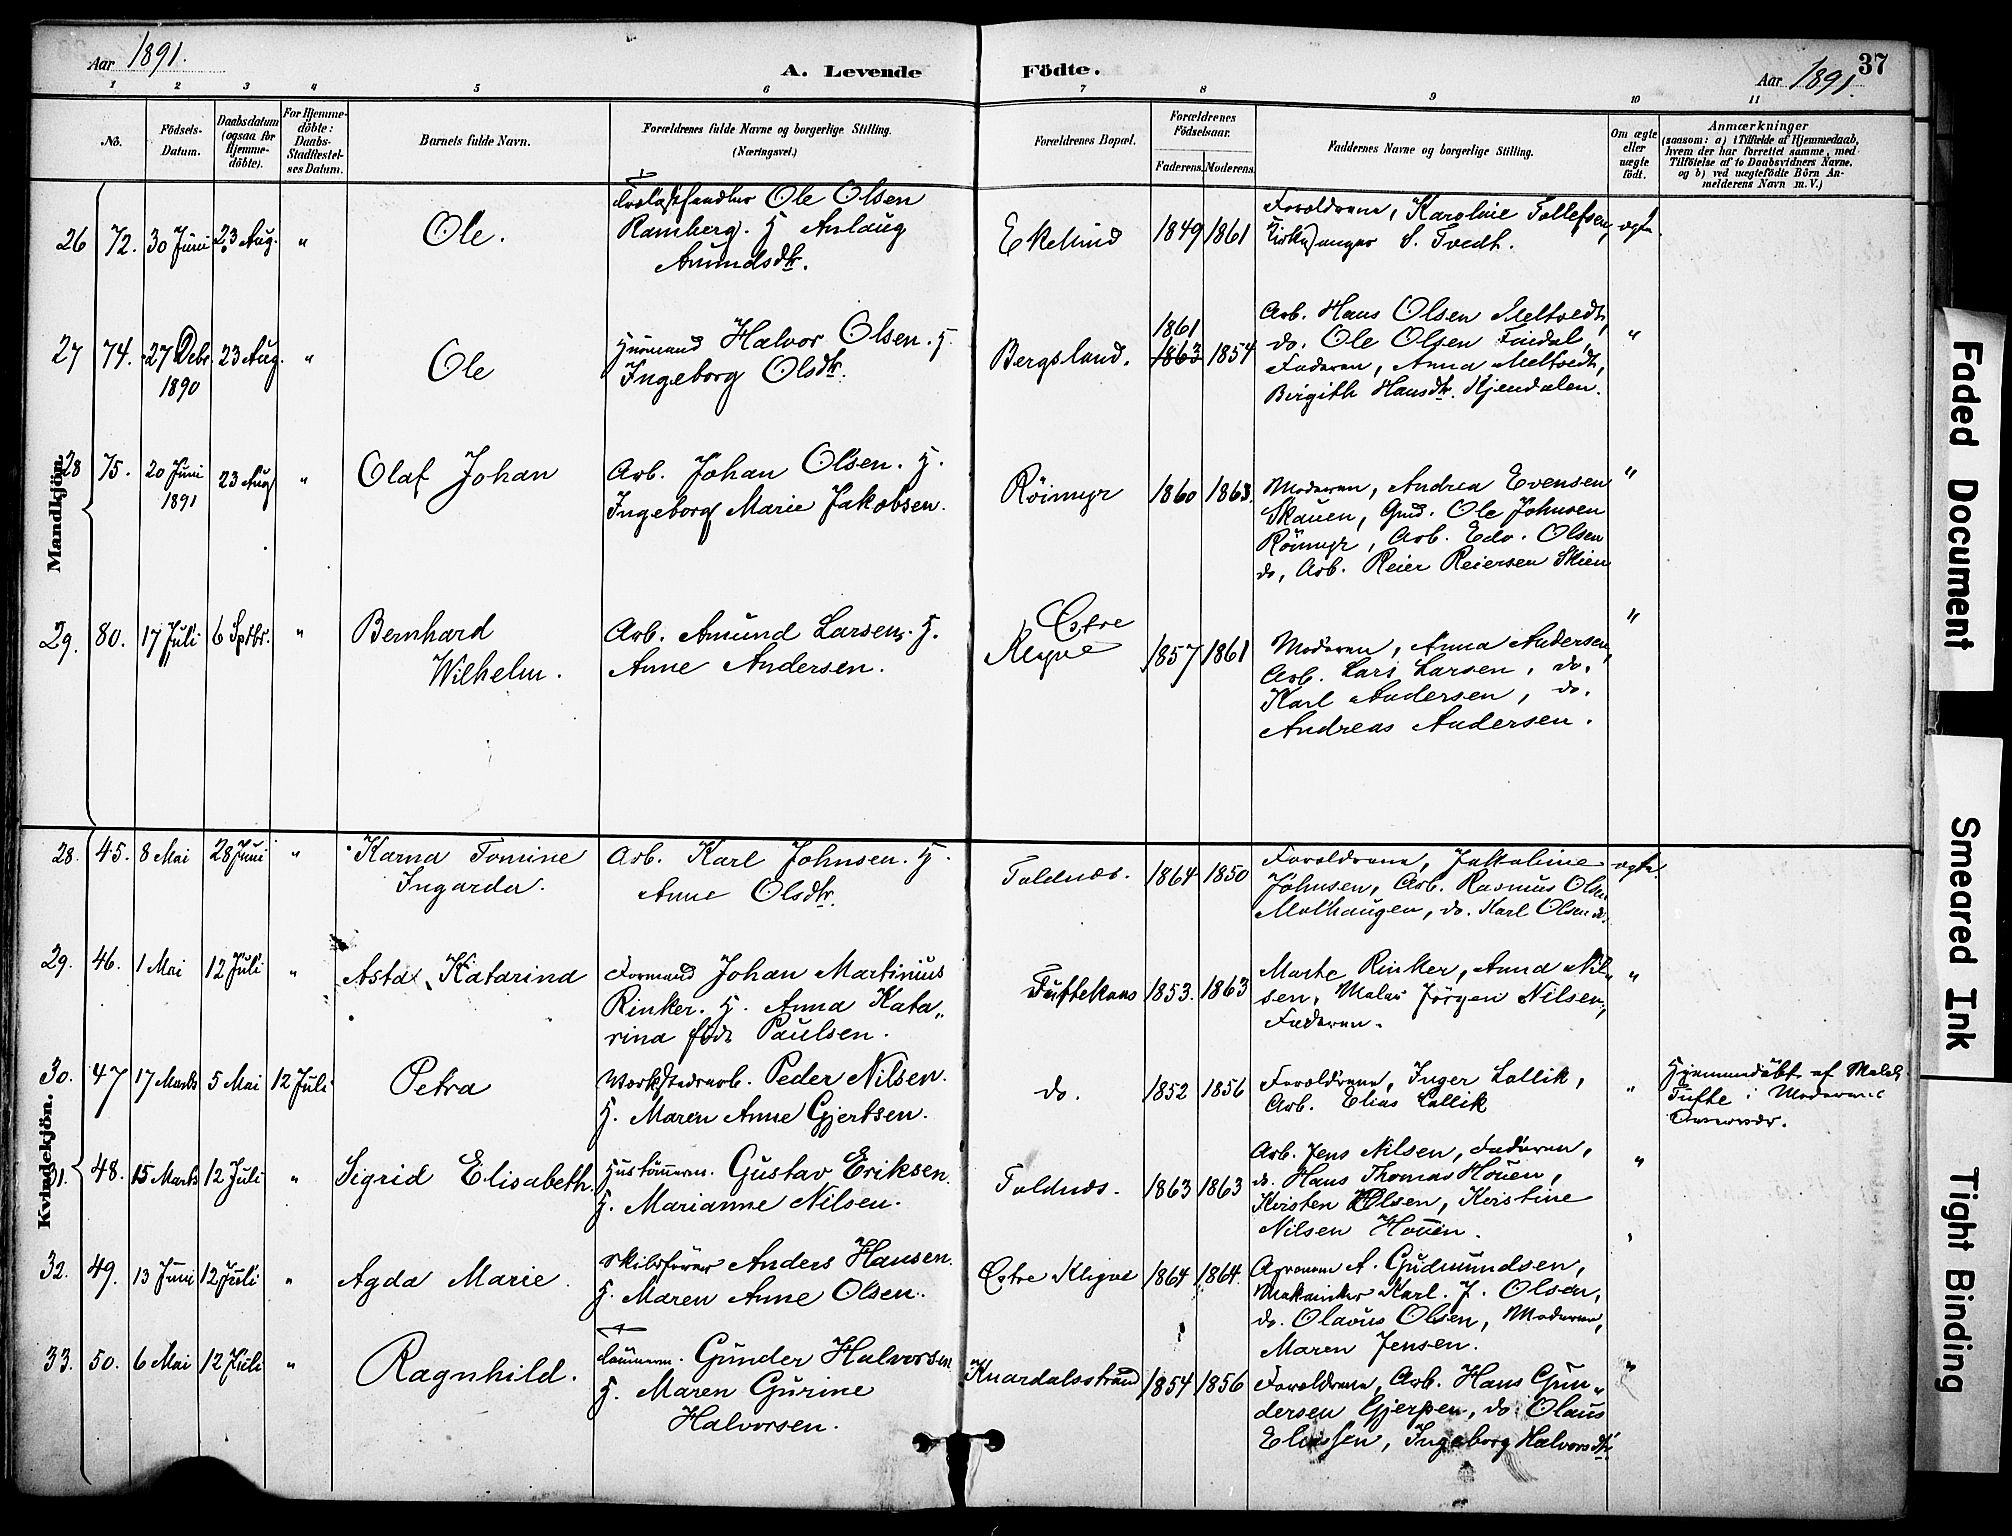 Aar 1891.
A. Levende Födte.
Aar 1891.
37
1 2 3 4 5 6 7 8 9 10 11
No.
Födsels-
Datum.
Daabsdatum
(ogsaa for
Hjemme-
döbte).
For Hjemme-
döbte:
Daabs-
Stadfæstel-
ses Datum.
Barnets fulde Navn.
Forældrenes fulde Navne og borgerlige Stilling.
(Næringsvei.)
Forældrenes Bopæl.
Forældrenes
Födselsaar.
Faderens. Moderens.
Faddernes Navne og borgerlige Stilling.
Om ægte
eller
uægte
födt.
Anmærkninger
(saasom: a) i Tilfælde af Hjemmedaab,
hvem der har forrettet samme, med
Tilföielse af to Daabsvidners Navne,
og b) ved uægtefödte Börn An-
melderens Navn m. V.)
Mandkjön.
26 72. 30 Juni 23 Aug. "
Ole.
Ole Olsen
Ramberg. H Aslaug
Amundsdtr.
Ekelund
1849 1861
Forældrene, Karoline Tollefsen,
Kirkesanger S. Tvedt.
ægte.
27 74. 27 Debr. 23 Aug. "
1890
Ole
Husmand Halvor Olsen. H
Ingeborg Olsdtr.
Bergsland.
1861
1863 1854
Arb. Hans Olsen Meltvedt,
do. Ole Olsen Findal,
Faderen, Anna Meltvedt,
Birgith Hansdtr. Kjendalen.
"
28 75. 20 Juni 23 Aug "
1891
Olaf Johan
Arb. Johan Olsen. H.
Ingeborg Marie Jakobsen.
Röimyr
1860 1863.
Moderen, Andrea Evensen
Skauen, Gmd. Ole Johnsen
Röimyr, Arb. Edv. Olsen
do, Arb. Reier Reiersen Skien
"
29. 80. 17 Juli 6 Sptbr. "
Bernhard
Wilhelm.
Arb. Amund Larsen. H.
Anne Andersen.
Östre
Klyve
1857 1861
Moderen, Anna Andersen,
Arb. Lars Larsen, do.
Karl Andersen, do.
Andreas Andersen.
"
Kvindekjön.
28. 45. 8 Mai 28 Juni "
Karna Tomine
Ingarda.
Arb. Karl Johnsen. H.
Anne Olsdtr.
Toldnæs.
1864 1850
Forældrene, Jakobine
Johnsen, Arb. Rasmus Olsen
Molhaugen, do. Karl Olsen do.
ægte.
29. 46. 1 Mai 12 Juli "
Asta Katarina
Formand Johan Martinius
Rinker. H. Anna Kata„
rina födt Paulsen.
Tuftekaas
1853. 1863
Marte Rinker, Anna Nil„
sen, Maler Jörgen Nilsen,
Faderen.
"
30. 47 17 Marts 5 Mai 12 Juli
Petra
Værkstedsarb. Peder Nilsen.
H. Maren Anne Gjertsen.
do.
1852 1856
Forældrene, Inger Lallik,
Arb. Elias Lallik
"
Hjemmedöbt af
Tufte i Moderens
Overvær.
31. 48. 15 Marts 12 Juli "
Sigrid Elisabeth.
Hustömrm. Gustav Eriksen.
H. Marianne Nilsen.
Toldnæs.
1863 1863
Arb. Jens Nilsen, Faderen,
do. Hans Thomas Houen,
Kirsten Olsen, Kristine
Nilsen Houen.
"
32. 49. 13 Juni 12 Juli "
Agda Marie.
Skibsförer Anders Hansen.
H. Maren Anne Olsen.
Östre Klyve
1864 1864.
Agronom A. Gudmundsen,
Mekaniker Karl. J. Olsen,
do. Olavus Olsen, Moderen,
Maren Jensen.
"
33. 50. 6 Mai 12 Juli "
Ragnhild.
Tömrerm. Gunder Halvorsen
H. Maren Gurine
Halvorsen.
Knardalsstrand
1854 1856
Forældrene, Arb. Hans Gun„
dersen Gjerpen, do. Olaus
Eliassen, Ingeborg Halvorsdtr.
"
Faded Document
Smeared Ink
Tight Binding